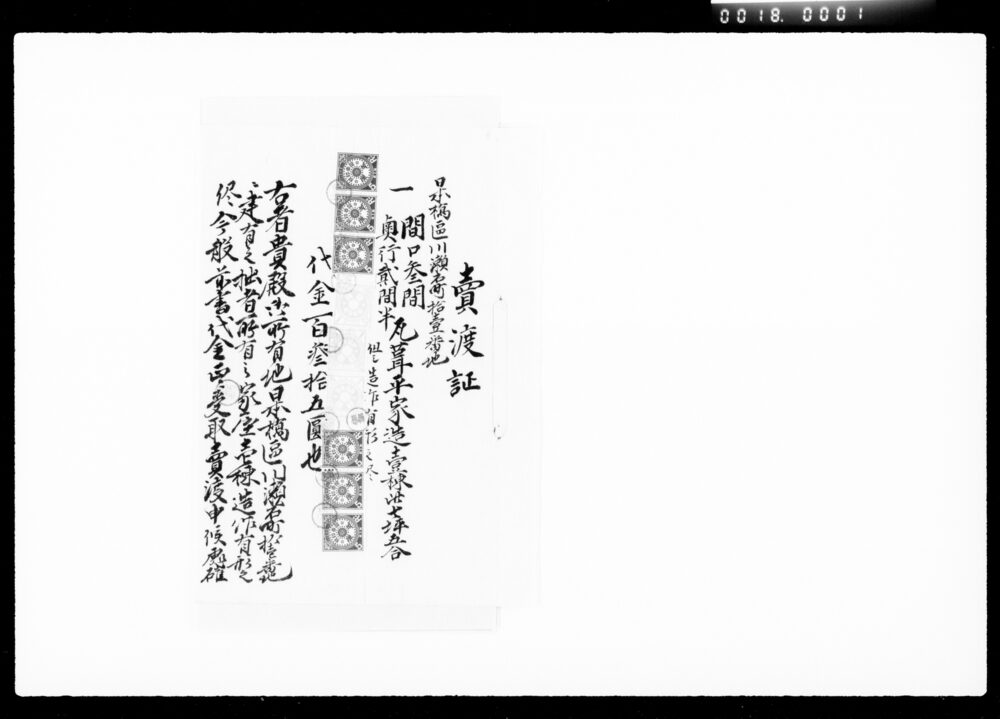 0018.0001
賣渡証
京橋區川瀬石町拾壹番地
一 間口叁間
奥行貳間半
瓦葺平家造壹棟此七坪五合
但シ造作有形之尽
代金一百叁拾五圓也
右者貴殿御所有地京橋區川瀬石町拾壹番地
ニ建有之拙者所有之家屋壱棟造作有形之
侭今般前書代金正ニ受取賣渡申候処確